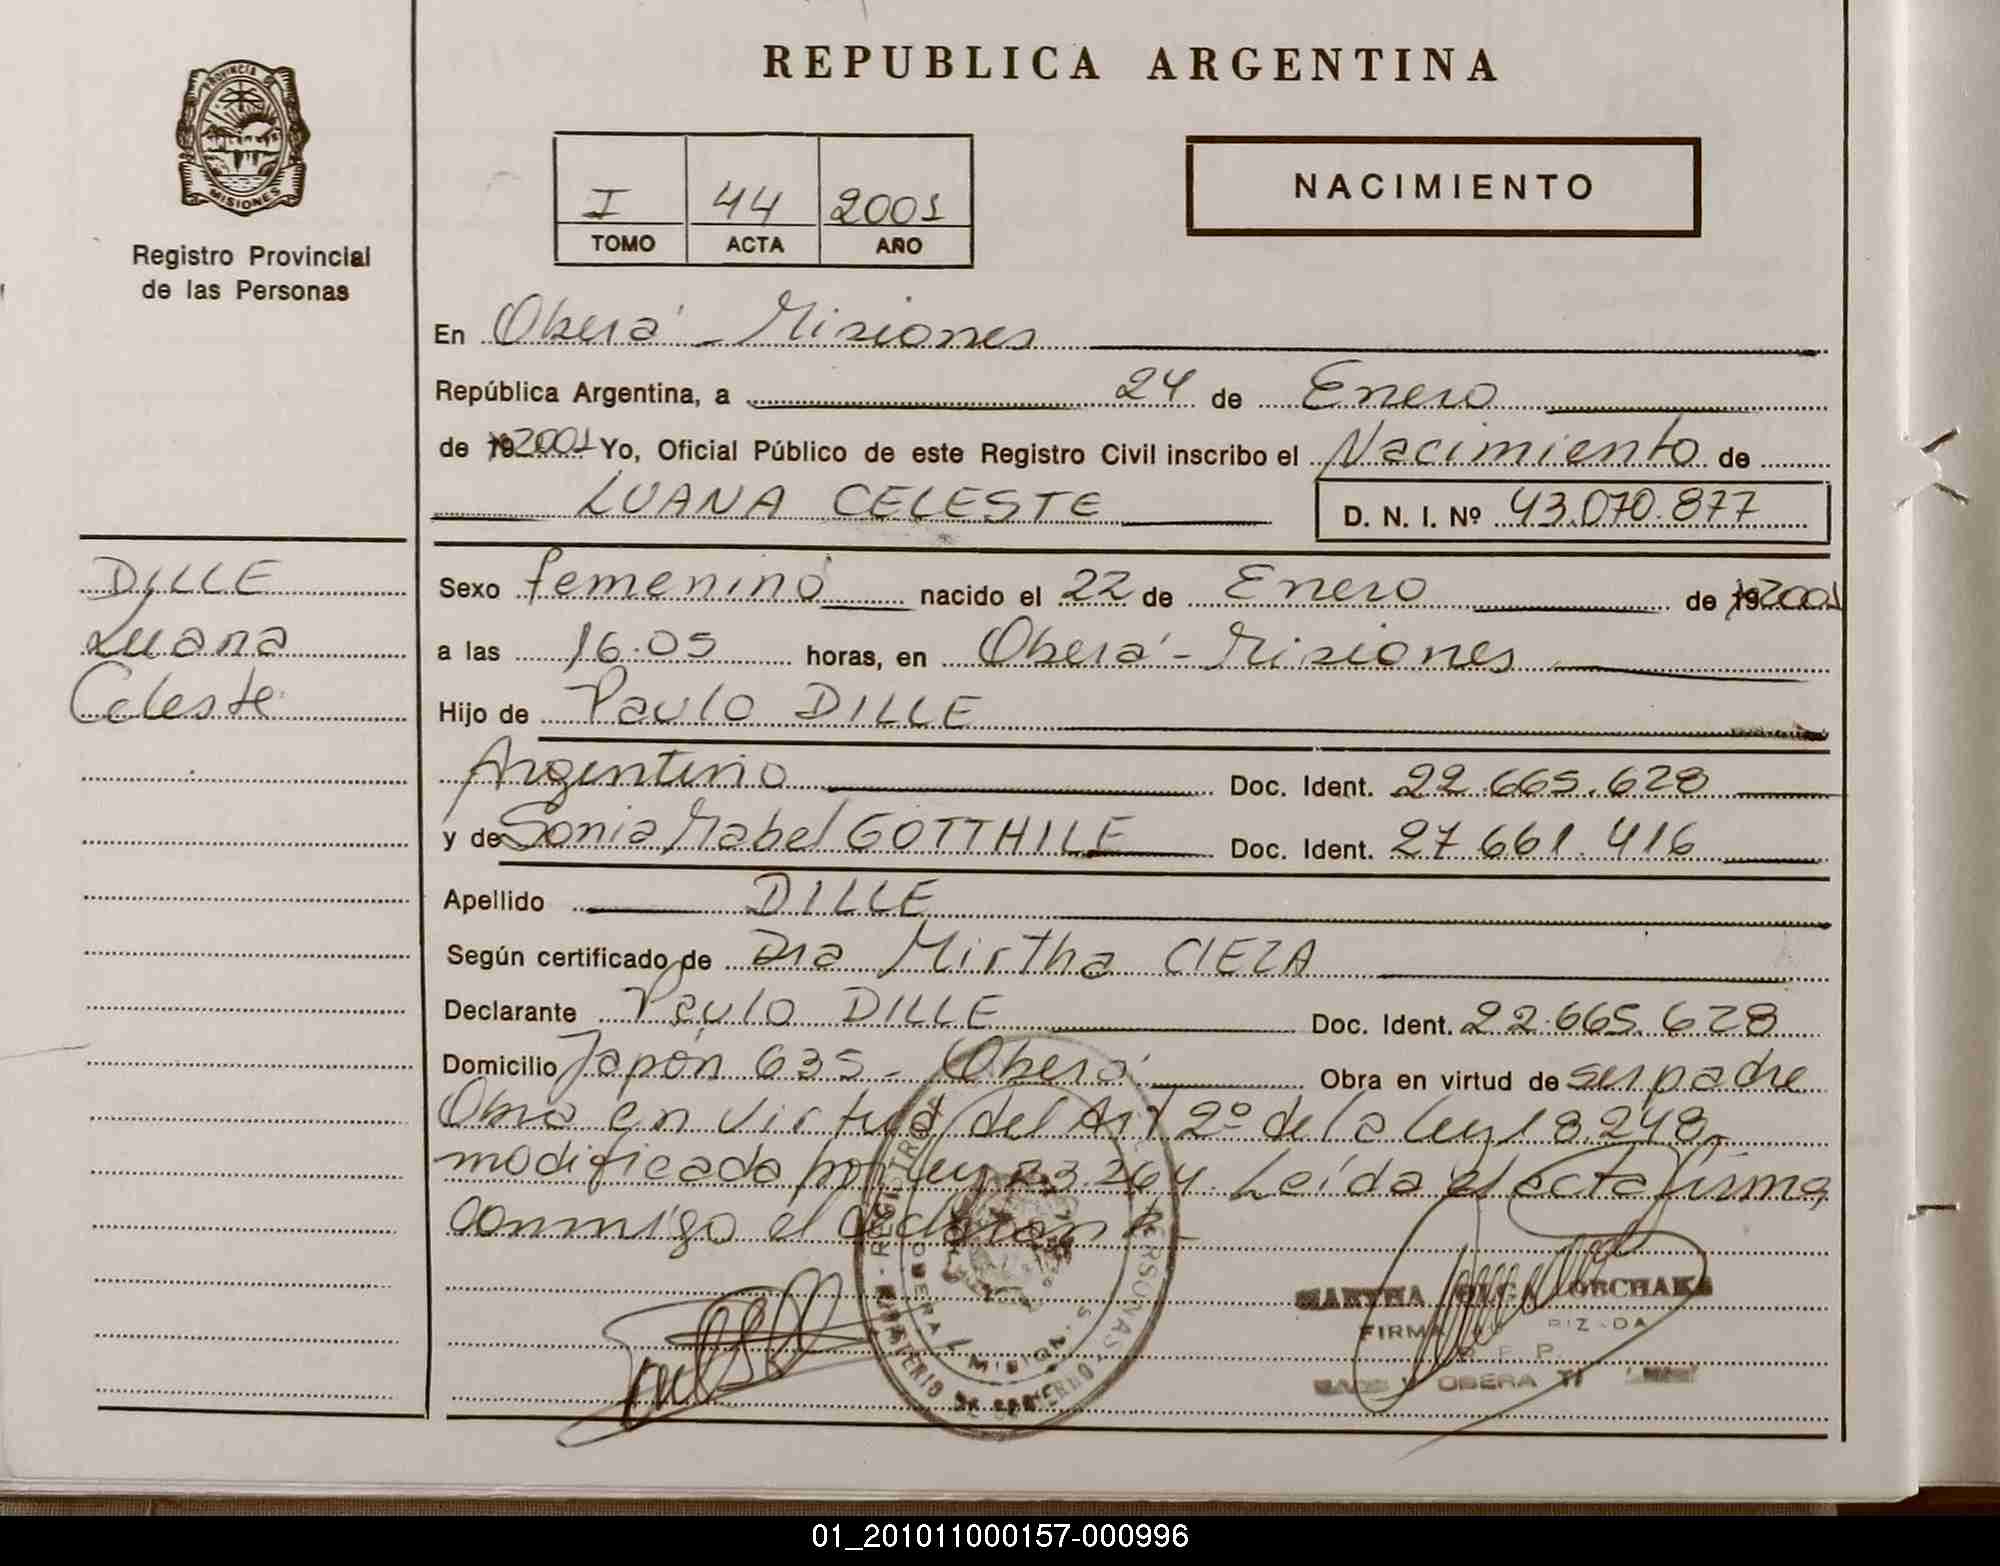 REPUBLICA ARGENTINA
PROVINCIA DE
MISIONES
Registro Provincial
de las Personas
I 44 2001
TOMO ACTA AÑO
NACIMIENTO
En Oberá - Misiones
República Argentina, a 24 de Enero
de 19 2001 Yo, Oficial Público de este Registro Civil inscribo el Nacimiento de
LUANA CELESTE D. N. I. Nº 43.070.877
DILLE
Luana
Celeste
Sexo femenino nacido el 22 de Enero de 19 2001
a las 16.05 horas, en Oberá - Misiones
Hijo de Paulo DILLE
Argentino Doc. Ident. 22.665.628
y de Sonia Mabel GOTTHILF Doc. Ident. 27.661.416
Apellido DILLE
Según certificado de Dra Mirtha CIEZA
Declarante Paulo DILLE Doc. Ident. 22.665.628
Domicilio Japón 635 - Oberá Obra en virtud de ser padre
Obra en virtud del Art 2º de la ley 18.248,
modificada por ley 23.264. Leída el acta firma
conmigo el declarante
MARTHA OLGA
FIRMA
OBERA
MINISTERIO DE GOBIERNO
01_201011000157-000996